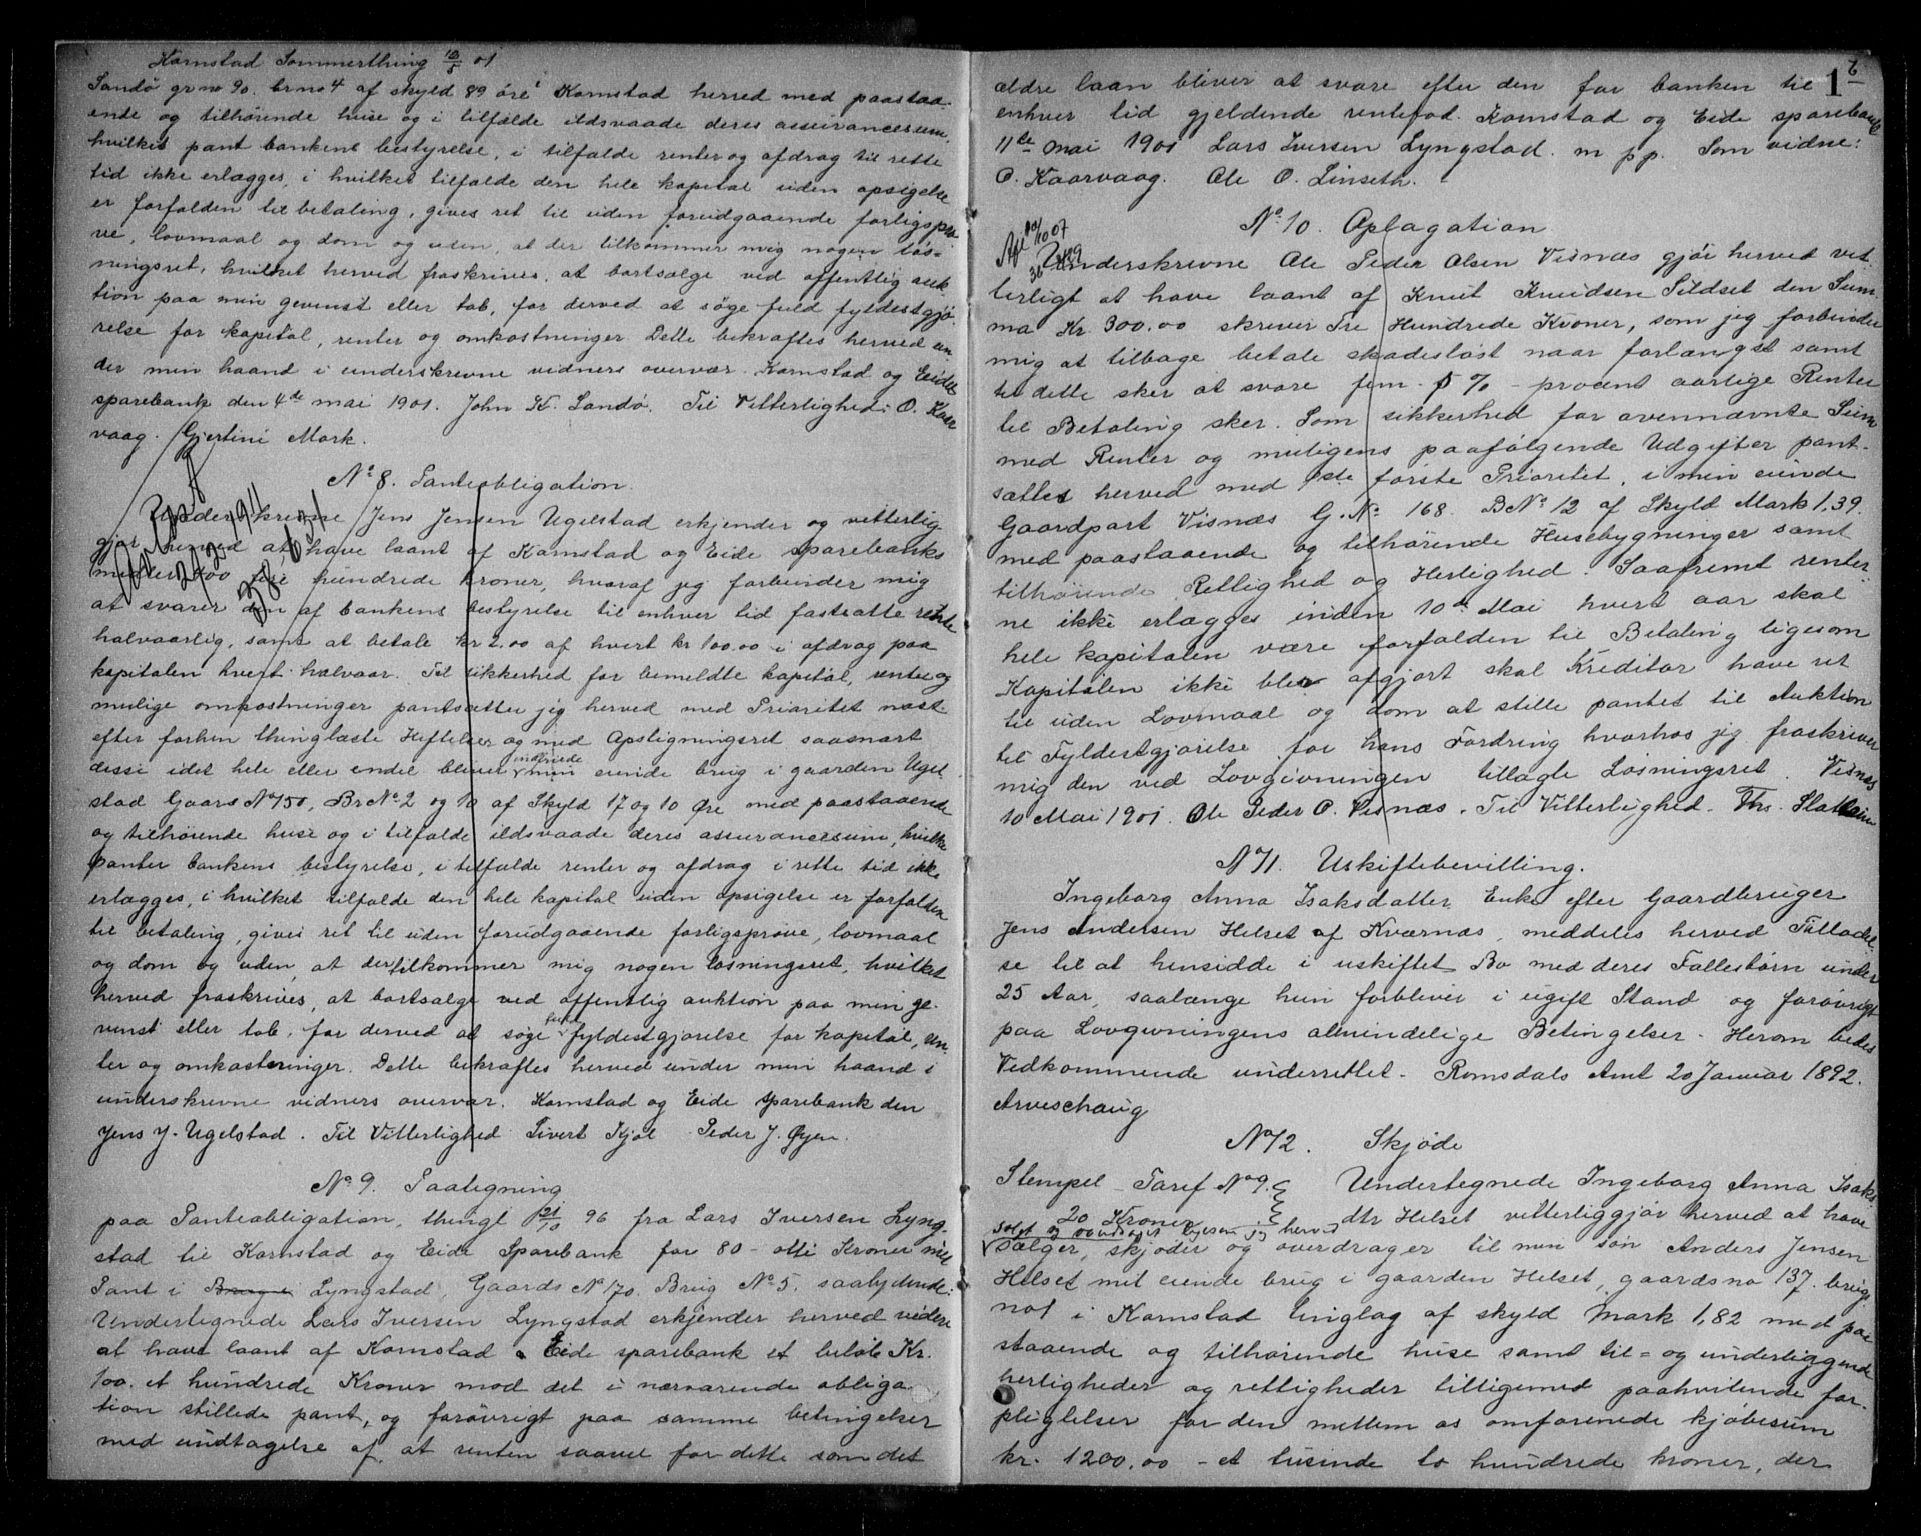 Kornstad Sommerthing 13/5 01
Sandö gr no 90. br no 4 af skyld 89 öre i Kornstad herred med paastaa-
ende og tilhörende huse og i tilfælde ildsvaade deres assurancesum,
hvilket pant bankens bestyrelse, i tilfælde renter og afdrag til rette
tid ikke erlægges, i hvilket tilfælde den hele kapital uden opsigelse
er forfalden til betaling, gives ret til uden forudgaaende forligsprö-
ve, lovmaal og dom og uden, at der tilkommer mig nogen lös-
ningsret, hvilket herved fraskrives, at bortsælge ved offentlig auk-
tion paa min gevinst eller tab, for derved at söge fuld fyldestgjö-
relse for kapital, renter og omkostninger. Dette bekræftes herved un
der min haand i underskrevne vidners overvær. Kornstad og Eide
sparebank den 4de mai 1901. John K. Sandö. Til Vitterlighed: O. Kaar
vaag. Gjertine Mork.
No 8. Panteobligation.
Underskrevne Jens Jensen Ugelstad erkjender og vetterlig
gjör herved at have laant af Kornstad og Eide sparebanks
midler 400 fire hundrede kroner, hvoraf jeg forbinder mig
at svarer den af bankens bestyrelse til enhver tid fastsatte rente
halvaarlig, samt at betale kr 2.00 af hvert kr 100.00 i afdrag paa
kapitalen hvert halvaar. Til sikkerhed for bemeldte kapital, renter og
mulige omkostninger pantsætter jeg herved med Prioritet næst
efter forhen thinglæste Heftelser og med Opsligningsret saasnart
disse idet hele eller endel bliver indfriede min eiende brug i gaarden Ugel
stad Gaards No 150, Br No 2 og 10 af Skyld 17 og 10 Öre med paastaaende
og tilhörende huse og i tilfælde ildsvaade deres assurancesum, hvilke
panter bankens bestyrelse, i tilfælde renter og afdrag i rette tid ikke
erlægges, i hvilket tilfælde den hele kapital uden opsigelse er forfalden
til betaling, gives ret til uden forudgaaende forligspröve, lovmaal
og dom og uden, at der tilkommer mig nogen lösningsret, hvilket
herved fraskrives, at bortsælge ved offentlig auktion paa min ge-
vinst eller tab, for derved at söge fuld fyldestgjörelse for kapital, ren-
ter og omkostninger. Dette bekræftes herved under min haand i
underskrevne vidners overvær. Kornstad og Eide sparebank den
Jens J. Ugelstad. Til Vitterlighed Sivert Kjöl Peder J. Øyen.
No 9. Paategning
paa Panteobligation, thingl 21/10 96 fra Lars Iversen Lyng
stad til Kornstad og Eide Sparebank for 80 - otti Kroner med
Pant i Lyngstad, Gaards No 170. Brug No 5. saalydende:
Undertegnede Lars Iversen Lyngstad erkjender herved videre
at have laant af Kornstad & Eide sparebank et belöb Kr.
100. et hundrede Kroner mod det i nærværende obliga
tion stillede pant, og foröVrigt paa samme betingelser
med undtagelse af, at renten saavel for dette som det
1 6
ældre laan bliver at svare efter den for banken til
enhver tid gjeldende rentefod. Kornstad og Eide sparebank
11te mai 1901 Lars Iversen Lyngstad. m p p. Som vidne:
O. Kaarvaag. Ole O. Linseth.
No 10. Oplagation
Underskrevne Ole Peder Olsen Visnæs gjör herved vit
terligt at have laant af Knut Knudsen Sildset den Sum
ma Kr 300.00 skriver Tre Hundrede Kroner, som jeg forbinder
mig at tilbage betale skadeslöst naar forlanges samt
til dette sker at svare fem - 5 % - procent aarlige Renter
til Betaling sker. Som sikkerhed for ovennævnte Sum
med Renter og muligens paafölgende Udgifter pant-
sættes herved med 1ste förste Prioritet, i min eiende
Gaardpart Visnæs G. No 168. B No 12 af Skyld Mark 1.39.
med paastaaende og tilhörende Husebygninger samt
tilhörende Rettighed og Herlighed. Saafremt renter-
ne ikke erlægges inden 10de Mai hvert aar skal
hele kapitalen være forfalden til Betaling ligesom
Kapitalen ikke blev afgjort skal Kreditor have ret
til uden Lovmaal og dom at stille pantet til Auktion
til Fyldestgjörelse for hans Fordring hvorhos jeg fraskriver
mig den ved Lovgivningen tillagte Lösningsret. Visnæs
10 Mai 1901. Ole Peder O. Visnæs. Til Vitterlighed.
No 11. Uskiftebevilling.
Ingeborg Anna Isaksdatter, Enke efter Gaardbruger
Jens Andersen Helset af Kværnæs, meddeles herved Tilladel-
se til at hensidde i uskiftet Bo med deres Fællesbörn under
25 Aar, saalænge hun forbliver i ugift Stand og foröVrigt
paa Lovgivningens almindelige Betingelser. Herom bedes
Vedkommende underrettet. Romsdals Amt 20 Januar 1892.
Arveschoug
No 12. Skjöde
Stempel - Taref No 9. Undertegnede Ingeborg Anna Isaks
20 Kroner dtr Helset vitterliggjör herved at have
solgt og overdraget ligesom jeg herved
sælger, skjöder og overdrager til min sön Anders Jensen
Helset mit eiende brug i gaarden Helset, gaards no 137. brugs
no 1 i Kornstad tinglag af skyld Mark 1,82 med paa
staaende og tilhörende huse samt til = og underliggende
herligheder og rettigheder tilligemed paahvilende for-
pligtelser for den mellem os omforenede kjöbesum
kr. 1200.00 - et tusinde to hundrede kroner, der